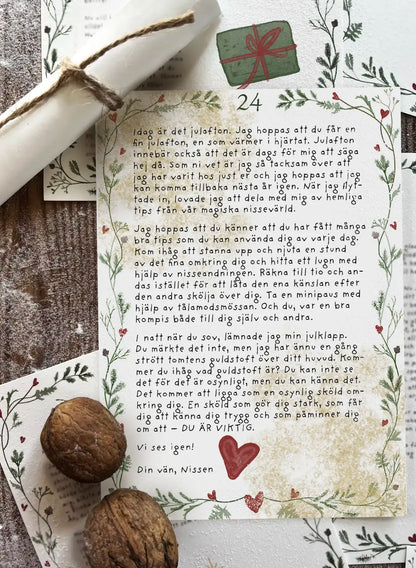 24
Idag är det julafton. Jag hoppas att du får en
fin julafton, en som värmer i hjärtat. Julafton
innebär också att det är dags för mig att säga
hej då. Som ni vet är jag så tacksam över att
jag har varit hos just er och jag hoppas att jag
kan komma tillbaka nästa år igen. När jag flyt-
tade in, lovade jag att dela med mig av hemliga
tips från vår magiska nissevärld.
Jag hoppas att du känner att du har fått många
bra tips som du kan använda dig av varje dag.
Kom ihåg att stanna upp och njuta en stund
av det fina omkring dig och hitta ett lugn med
hjälp av nisseandningen. Räkna till tio och an-
das istället för att låta den ena känslan efter
den andra skölja över dig. Ta en minipaus med
hjälp av tålamodsmössan. Och du, var en bra
kompis både till dig själv och andra.
I natt när du sov, lämnade jag min julklapp.
Du märkte det inte, men jag har ännu en gång
strött tomtens guldstoft över ditt huvud. Kom-
mer du ihåg vad guldstoft är? Du kan inte se
det för det är osynligt, men du kan känna det.
Det kommer att ligga som en osynlig sköld om-
kring dig. En sköld som gör dig stark, som får
dig att känna dig trygg och som påminner dig
om att – DU ÄR VIKTIG.
Vi ses igen!
Din vän, Nissen